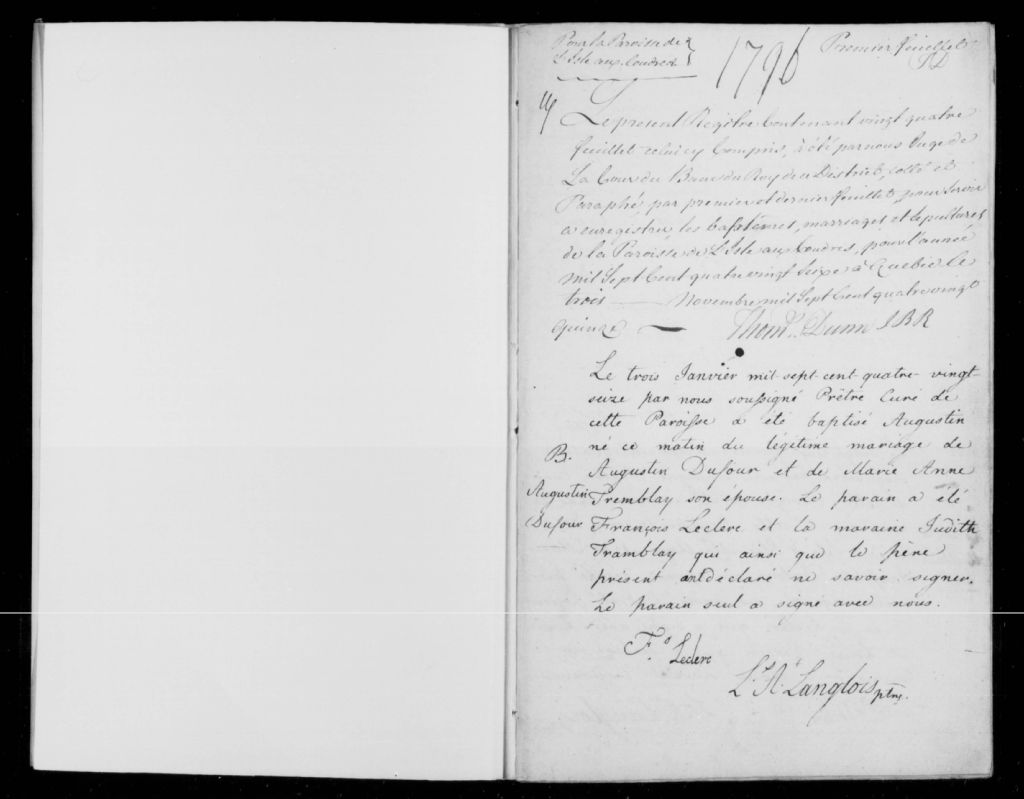 Pour la Paroisse de
L'Isle aux Coudres
1796
Premier feuillet
TD
Le present Registre Contenant vingt quatre
feuillet celui cy Compris, à été par nous Juge de
La Cour du Banc du Roy de ce District, cotté et
Paraphé par premier et dernier feuillet, pour servir
a enregistrer les baptêmes, marriages et sepultures
de la Paroisse de L'Isle aux Coudres, pour l'année
Mil Sept Cent quatre vingt Seize à Quebec le
trois Novembre mil Sept Cent quatre vingt
Quinze
Thom.s Dunn JBR
Le trois Janvier mil-sept-cent-quatre-vingt-
seize par nous soussigné Prêtre Curé de
cette Paroisse a été baptisé Augustin
né ce matin du légitime mariage de
B.
Augustin
Dufour
Augustin Dufour et de Marie Anne
Tremblay son épouse. Le parain a été
François Leclerc et la maraine Judith
Tramblay qui ainsi que le père
présent ont déclaré ne savoir signer.
Le parain seul a signé avec nous.
F.s Leclerc
Langlois ptre.